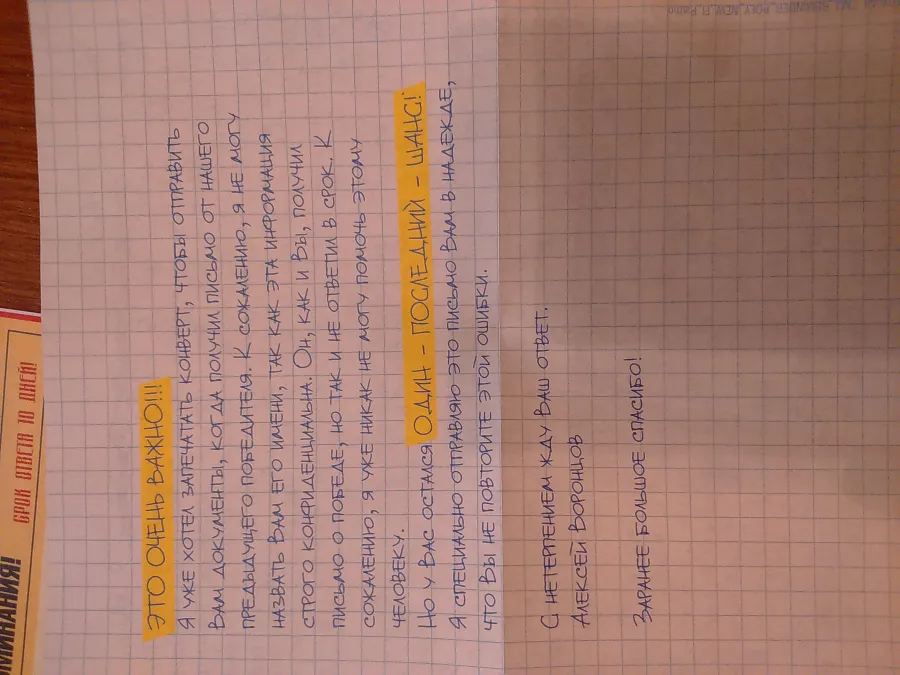 ЭТО ОЧЕНЬ ВАЖНО!!!
Я УЖЕ ХОТЕЛ ЗАПЕЧАТАТЬ КОНВЕРТ, ЧТОБЫ ОТПРАВИТЬ
ВАМ ДОКУМЕНТЫ, КОГДА ПОЛУЧИЛ ПИСЬМО ОТ НАШЕГО
ПРЕДЫДУЩЕГО ПОБЕДИТЕЛЯ. К СОЖАЛЕНИЮ, Я НЕ МОГУ
НАЗВАТЬ ВАМ ЕГО ИМЕНИ, ТАК КАК ЭТА ИНФОРМАЦИЯ
СТРОГО КОНФИДЕНЦИАЛЬНА. ОН, КАК И ВЫ, ПОЛУЧИЛ
ПИСЬМО О ПОБЕДЕ, НО ТАК И НЕ ОТВЕТИЛ В СРОК. К
СОЖАЛЕНИЮ, Я УЖЕ НИКАК НЕ МОГУ ПОМОЧЬ ЭТОМУ
ЧЕЛОВЕКУ.
НО У ВАС ОСТАЛСЯ ОДИН - ПОСЛЕДНИЙ - ШАНС!
Я СПЕЦИАЛЬНО ОТПРАВЛЯЮ ЭТО ПИСЬМО ВАМ В НАДЕЖДЕ,
ЧТО ВЫ НЕ ПОВТОРИТЕ ЭТОЙ ОШИБКИ.
С НЕТЕРПЕНИЕМ ЖДУ ВАШ ОТВЕТ.
АЛЕКСЕЙ ВОРОНЦОВ
ЗАРАНЕЕ БОЛЬШОЕ СПАСИБО!
СРОК ОТВЕТА 10 ДНЕЙ!